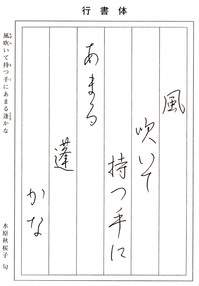 行書体
風
吹いて
持つ手に
あまる
蓬
かな
風吹いて持つ手にあまる蓬かな
水原秋桜子 句